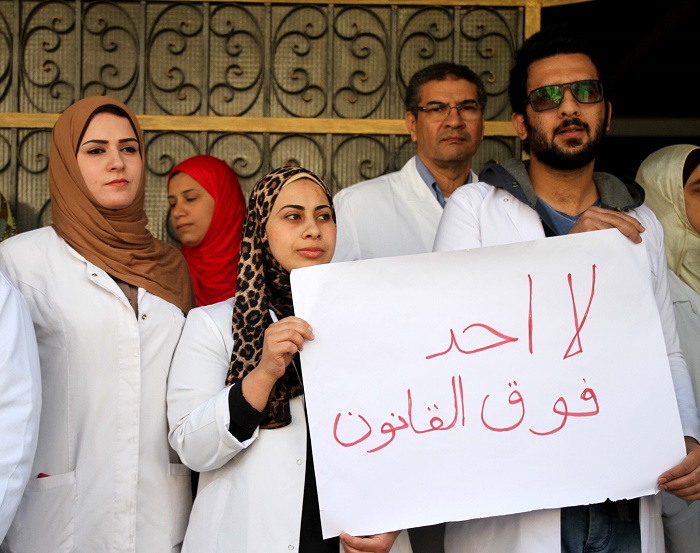 لا احد
فوق القانون